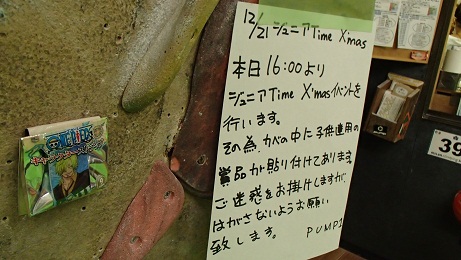 12/21 ジュニアTime X'mas
本日16:00より
ジュニアTime X'masイベントを
行います。
その為、カベの中に子供達用の
賞品が貼り付けてあります。
ご迷惑をお掛けしますが、
はがさないようお願い
致します。
PUMP1
ONE PIECE
39